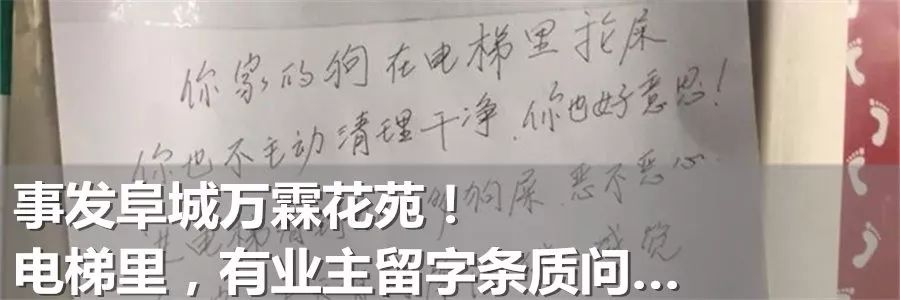 你家的狗在电梯里拉屎
你也不主动清理干净，你也好意思！
狗屎，恶不恶心
进电梯
感觉
事发阜城万霖花苑！
电梯里，有业主留字条质问...